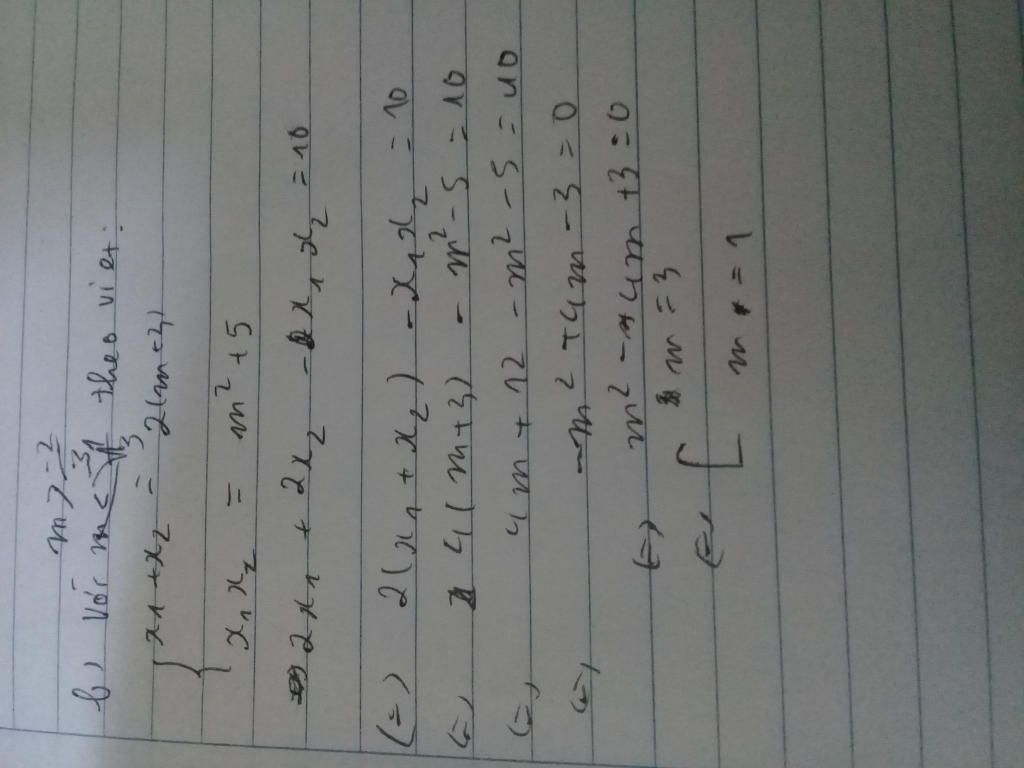 m > -2/3
b) Với theo viet:
x1 + x2 = 2(m+3)
x1x2 = m² + 5
2x1 + 2x2 - x1x2 = 10
(=) 2(x1 + x2) - x1x2 = 10
(=) 4(m+3) - m² - 5 = 10
(=) 4m + 12 - m² - 5 = 10
(=) -m² + 4m - 3 = 0
(=) m² - 4m + 3 = 0
(=) [ m = 3
m = 1